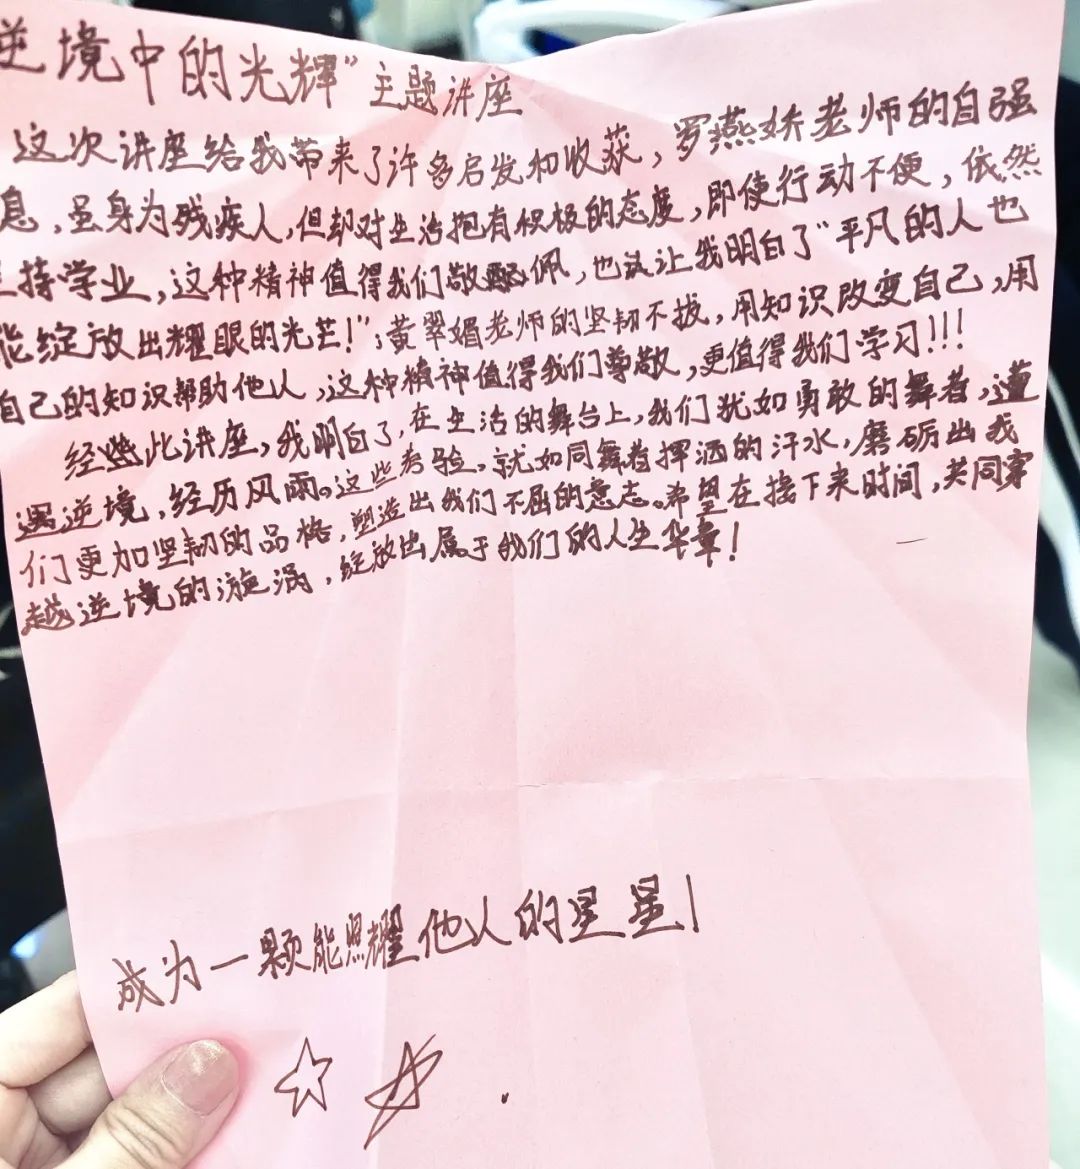 逆境中的光辉”主题讲座
这次讲座给我带来了许多启发和收获，罗燕娇老师的自强
息，虽身为残疾人，但却对生活抱有积极的态度，即使行动不便，依然
坚持学业，这种精神值得我们敬佩，也让我明白了“平凡的人也
能绽放出耀眼的光芒！”；黄翠媚老师的坚韧不拔，用知识改变自己，用
自己的知识帮助他人，这种精神值得我们尊敬，更值得我们学习！！！
经此讲座，我明白了，在生活的舞台上，我们犹如勇敢的舞者，遭
遇逆境，经历风雨。这些考验，就如同舞者挥洒的汗水，磨砺出我
们更加坚韧的品格，塑造出我们不屈的意志。希望在接下来时间，共同穿
越逆境的漩涡，绽放出属于我们的人生华章！
成为一颗能照耀他人的星星！